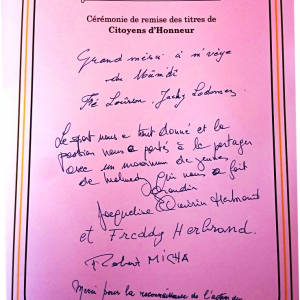 Cérémonie de remise des titres de
Citoyens d'Honneur
Grand merci à
du
Louison, Jacky
Le sport nous a tout donné et la
passion nous a portés à la partager
avec un maximum de jeunes
de qui nous a fait
grandir
Jacqueline Herbrand
et Freddy Herbrand.
Robert MICHA
Merci pour la reconnaissance de